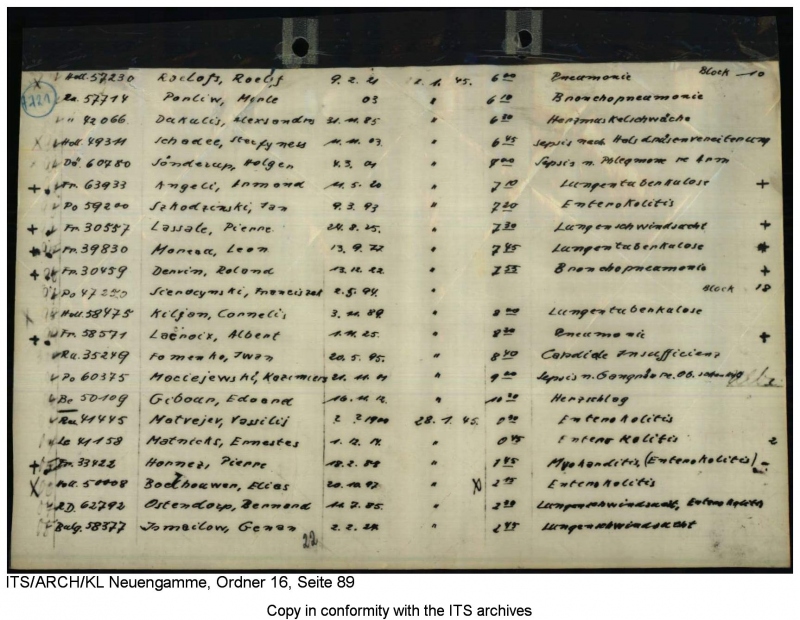 Block 10
Holl. 57230 Roelofs, Roelf 9. 2. 21 2. 1. 45. 6 00 Pneumonie
1221 Ru. 57714 03 " 6 10 Bronchopneumonie
" 42066 Dakalis, Alexsandros 31. 11. 85 " 6 30 Herzmuskelschwäche
Holl. 49311 Schadee, 11. 11. 03 " 6 45 Sepsis nach Halsdrüsenvereiterung
Dä. 60780 Sönderup, Holger 4. 3. 01 " 7 00 Sepsis n. Phlegmone re Arm
+ Fr. 63933 Angeli, Armond 11. 5. 20 " 7 10 Lungentuberkulose +
Po 59200 Szkodzinski, Jan 9. 3. 93 " 7 20 Enterokolitis
+ Fr. 30557 Lassale, Pierre 24. 8. 25. " 7 30 Lungenschwindsucht +
+ Fr. 39830 Moreau, Leon 13. 9. 22 " 7 45 Lungentuberkulose +
+ Fr. 30459 Derrin, Roland 13. 12. 22 " 7 55 Bronchopneumonie +
Po 47220 Sierocynski, Franciszek 2. 5. 94. " Block 18
x Holl. 58475 Kiljan, Cornelis 3. 11. 89 " 8 00 Lungentuberkulose
+ Fr. 58571 Lacroix, Albert 1. 11. 25. " 8 20 Pneumonie +
Ru. 35249 Fomenko, Iwan 20. 5. 95. " 8 40 Cardiale Insufficienz
Po 60375 Maciejewski, Kazimierz 21. 11. 01 " 9 00 Sepsis n. Gangrän re. Ob.
Be 50109 Giboar, Edoard 16. 11. 12 " 10 30 Herzschlag
Ru. 41445 Matvejev, Vassilij ? ? 1900 28. 1. 45. 0 30 Enterokolitis
Le 41158 Matnieks, Ernestes 1. 12. 14. " 0 45 Entero Kolitis 2
+ Fr. 33422 Honnez, Pierre 18. 2. 89 " 1 45 Myokarditis, (Enterokolitis) -
X Holl. 50008 Boekhouwer, Elias 20. 10. 97 " X 2 15 Enterokolitis
RD. 62792 Ostendorp, Bernard 11. 7. 85. " 2 30 Lungenschwindsucht, Enterokolitis
Bulg. 58377 Ismailow, Genan 2. 2. 24. " 2 45 Lungenschwindsucht
22
ITS/ARCH/KL Neuengamme, Ordner 16, Seite 89
Copy in conformity with the ITS archives